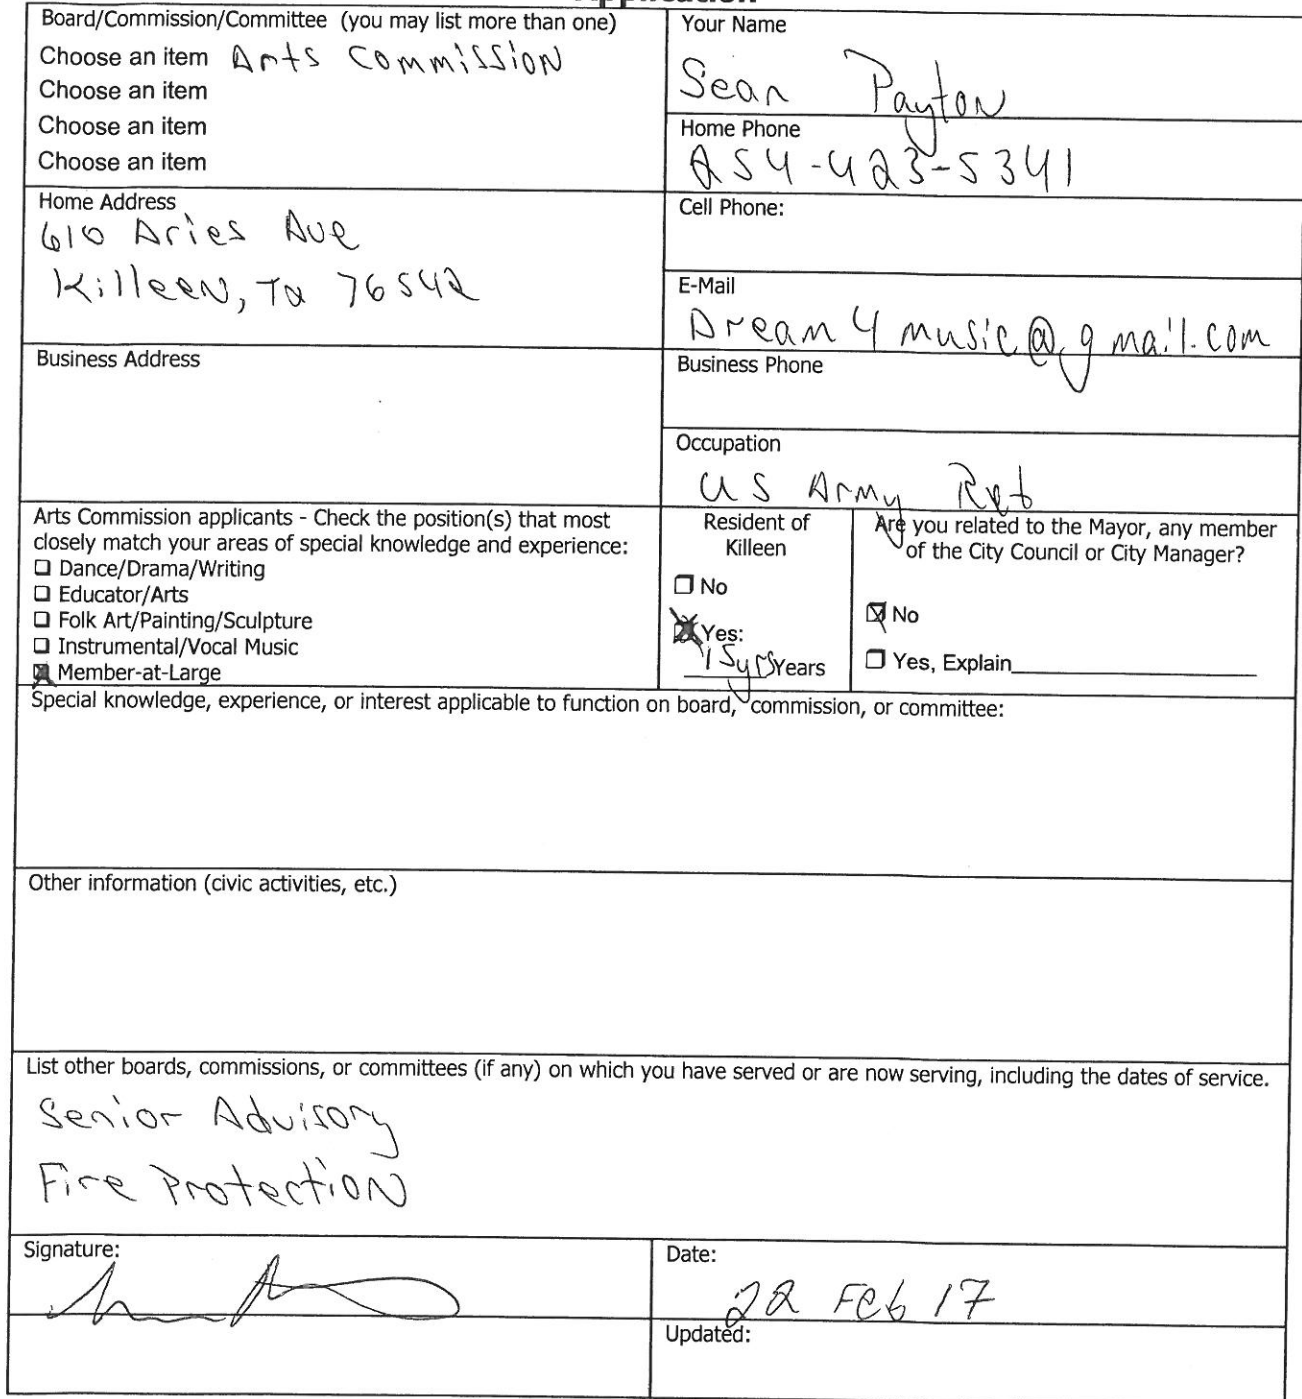 Application
Board/Commission/Committee (you may list more than one)
Choose an item Arts Commission
Choose an item
Choose an item
Choose an item
Your Name
Sean Payton
Home Phone
254-423-5341
Home Address
610 Aries Ave
Killeen, Tx 76542
Cell Phone:
E-Mail
Dream4music@gmail.com
Business Address
Business Phone
Occupation
US Army Ret
Arts Commission applicants - Check the position(s) that most
closely match your areas of special knowledge and experience:
❑ Dance/Drama/Writing
❑ Educator/Arts
❑ Folk Art/Painting/Sculpture
❑ Instrumental/Vocal Music
☒ Member-at-Large
Resident of
Killeen
❑ No
☒ Yes:
15yrs Years
Are you related to the Mayor, any member
of the City Council or City Manager?
☒ No
❑ Yes, Explain
Special knowledge, experience, or interest applicable to function on board, commission, or committee:
Other information (civic activities, etc.)
List other boards, commissions, or committees (if any) on which you have served or are now serving, including the dates of service.
Senior Advisory
Fire Protection
Signature:
Date:
22 Feb 17
Updated: